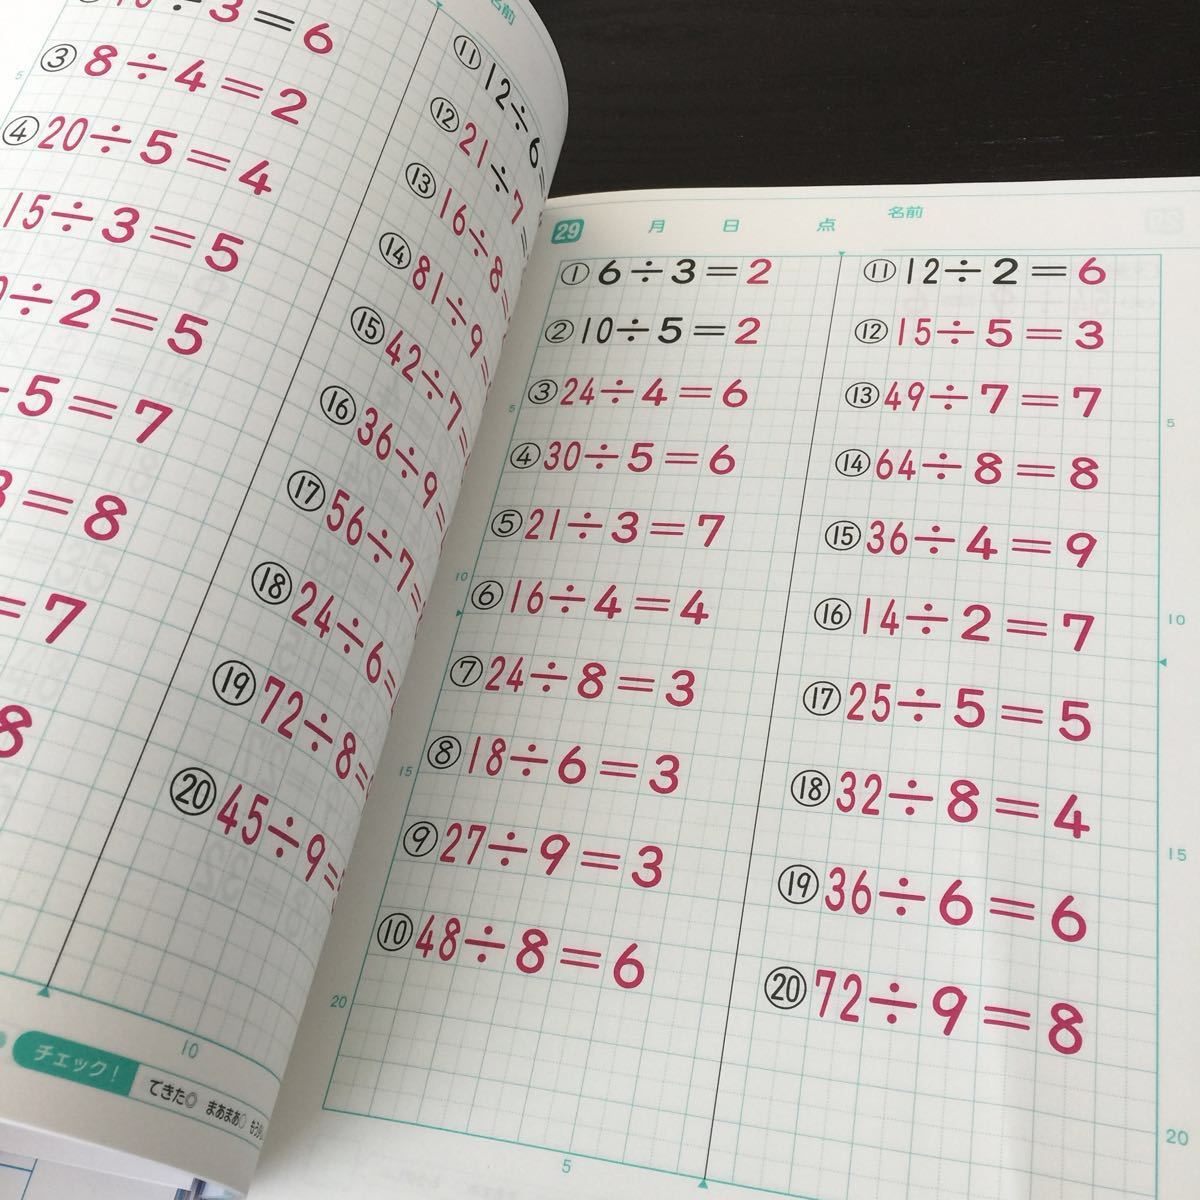 名前
÷3=6
③8÷4=2
④20÷5=4
15÷3=5
÷2=5
÷5=7
=8
=7
8
⑪12÷6=
⑫21÷7=
⑬16÷8=
⑭81÷9=
⑮42÷7=
⑯36÷9=
⑰56÷7=
⑱24÷6=
⑲72÷8=
⑳45÷9=
5
10
チェック!
できた◎ まあまあ○
29 月 日 点 名前
①6÷3=2
②10÷5=2
③24÷4=6
④30÷5=6
⑤21÷3=7
⑥16÷4=4
⑦24÷8=3
⑧18÷6=3
⑨27÷9=3
⑩48÷8=6
⑪12÷2=6
⑫15÷5=3
⑬49÷7=7
⑭64÷8=8
⑮36÷4=9
⑯14÷2=7
⑰25÷5=5
⑱32÷8=4
⑲36÷6=6
⑳72÷9=8
5
10
15
20
5
10
15
20
5